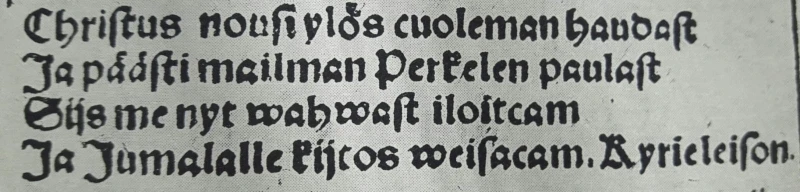 Chriſtus nouſi ylös cuoleman haudaſt
Ja pääſti mailman Perkelen paulaſt
Sijs me nyt wahwaſt iloitcam
Ja Jumalalle kijtos weiſacam. Kyrieleiſon.